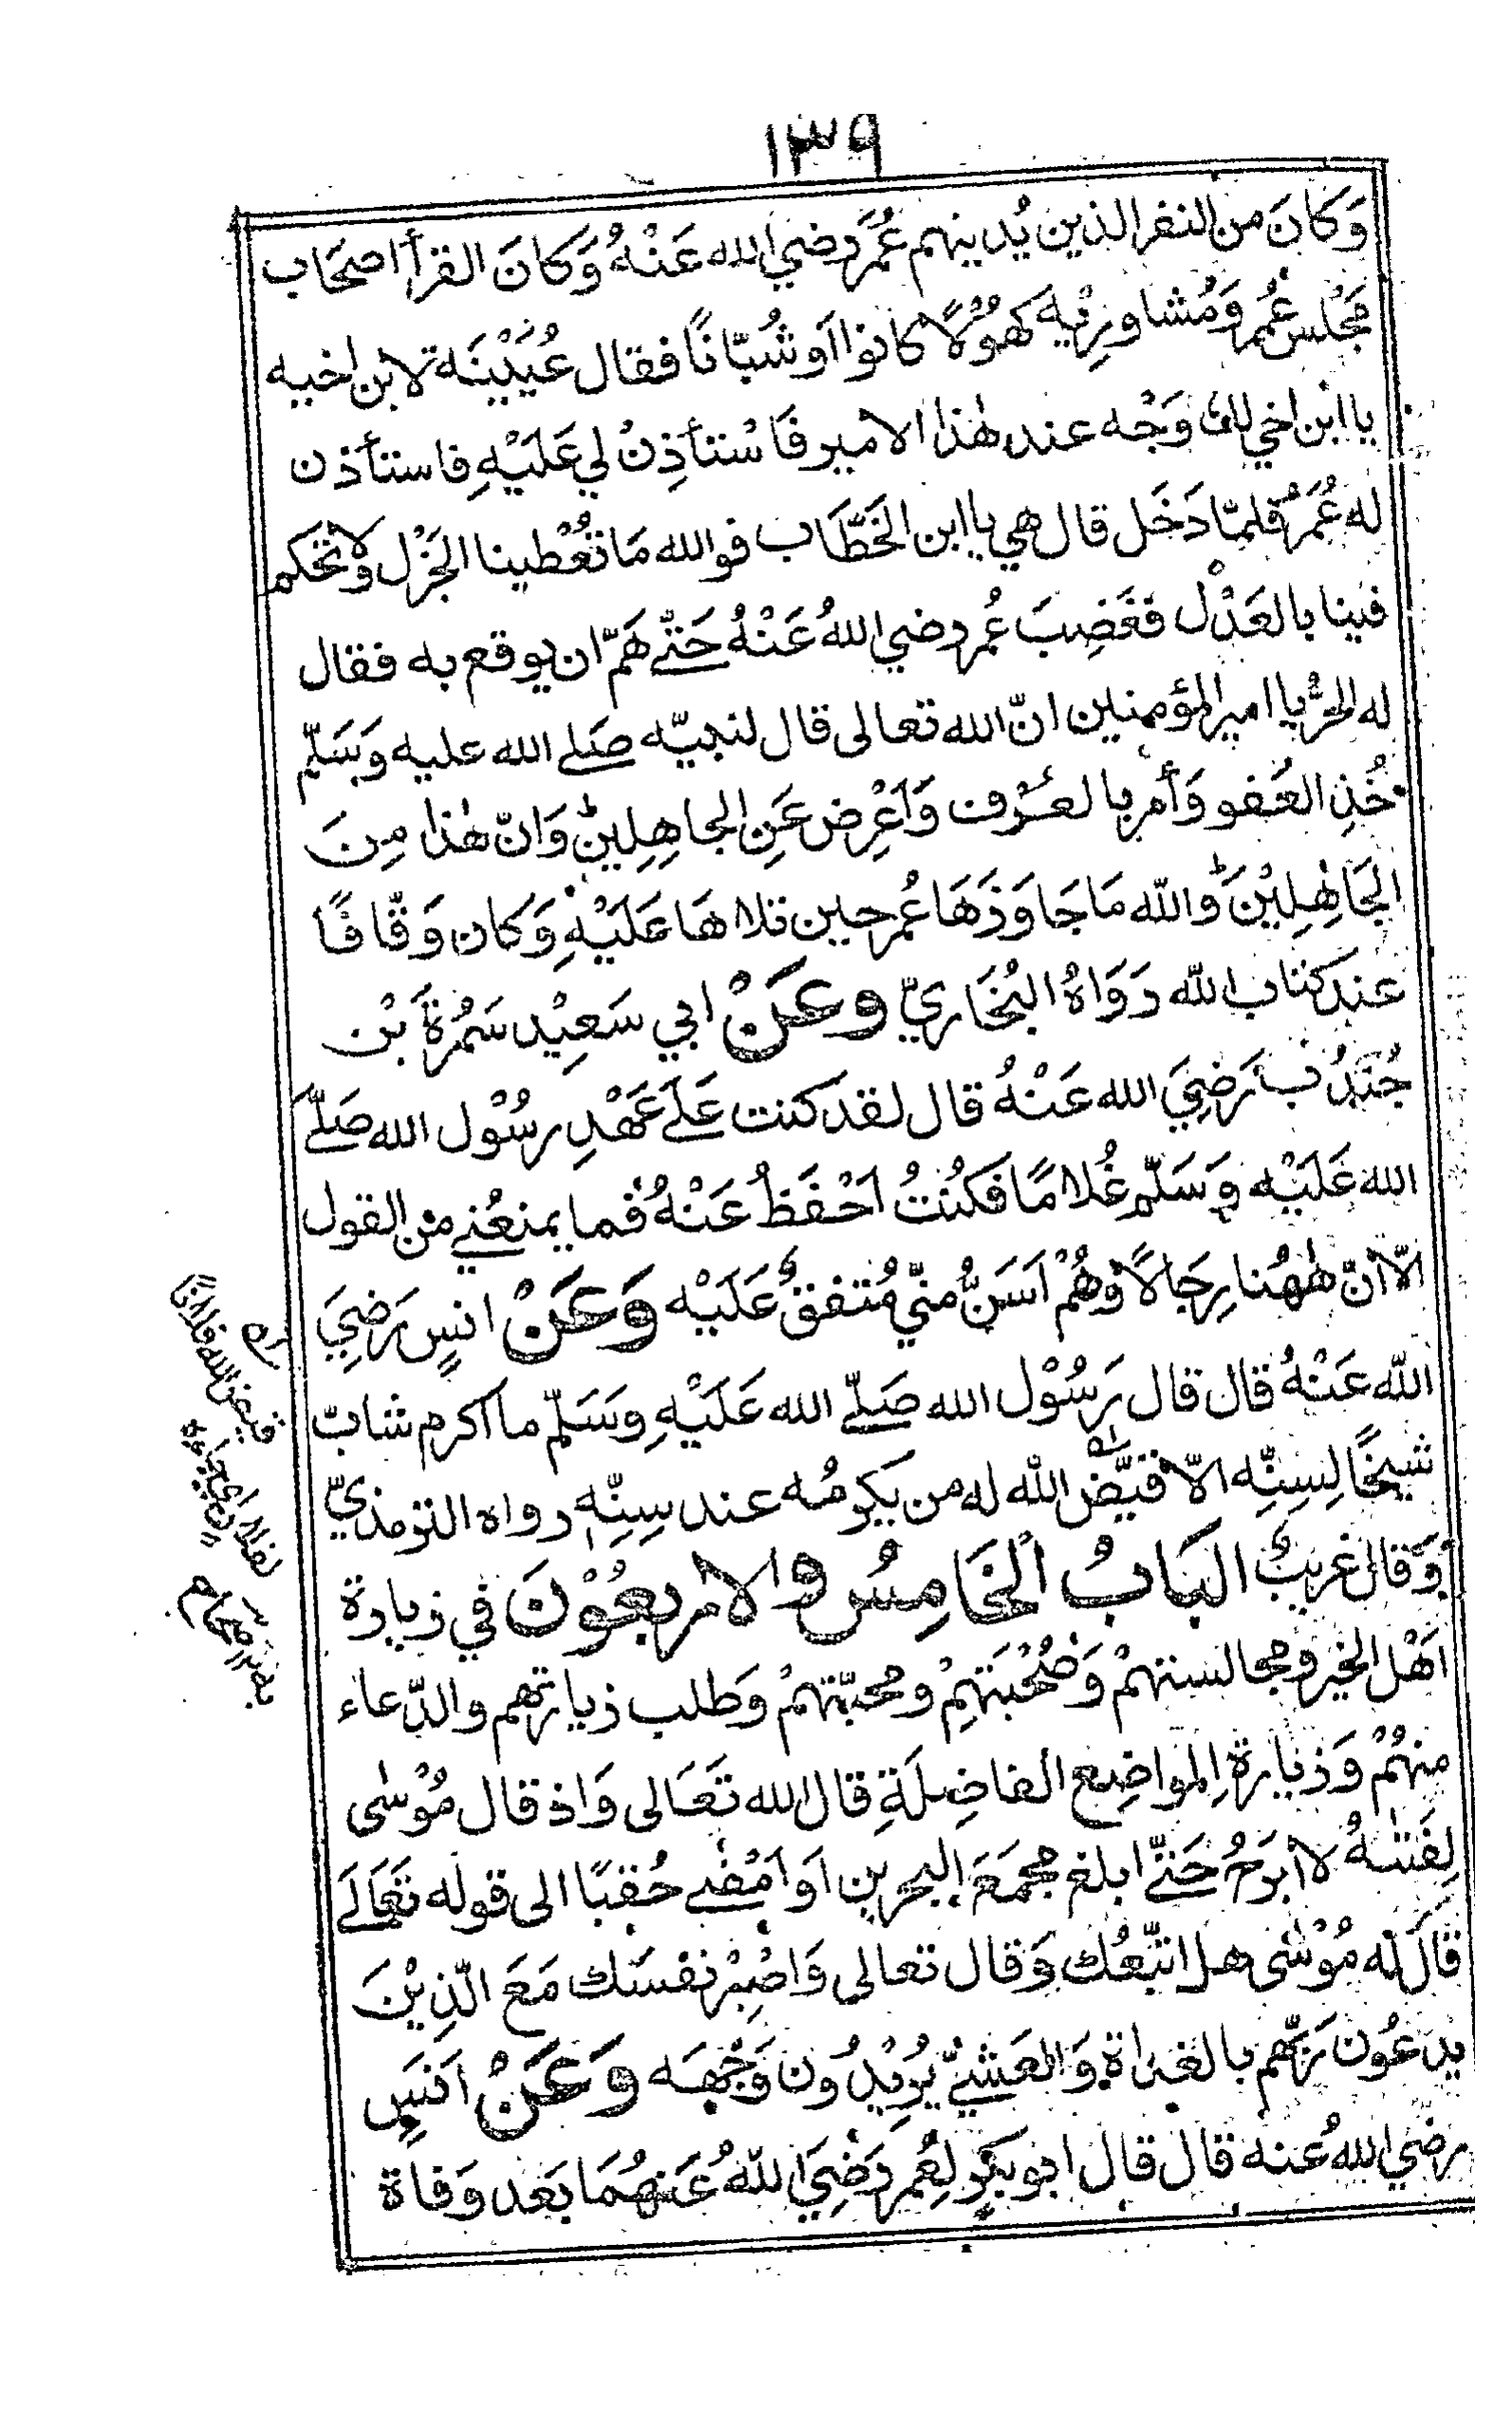 ١٣٩
وَكَانَ من النفر الذين يُدينهم عُمَرَ رضي الله عَنْهُ وَكَانَ القرأ اصحَاب
مَجْلس عُمر وَمُشاورِيْه كهُوْلًا كانوا اَو شُبّانًا فقال عُيَيْنَة لابن اخيه
يا ابن اخي لك وَجْه عند هٰذا الامير فَاسْتأذِنْ لي عَلَيْهِ فاستأذن
له عُمَرُ فلمّا دَخَل قال هي يا ابن الخَطَّاب فوالله مَا تُعْطينا الجَزْل ولا تحكم
فينا بالعَدْل فغَضِبَ عُمر رضي اللهُ عَنْهُ حَتّٰے هَمّ ان يوقع به فقال
له الحرُّ يا امير المؤمنين انّ الله تعالى قال لنبيّه صَلے الله عليه وَسَلّم
خُذِ العَفو وَأمر بالعُرْف وَاَعْرِض عَنِ الجاهِلِين وَانّ هٰذا مِنَ
الجَاهِلِيْنَ وَاللّه مَا جَاوَزَهَا عُمر حين تلاهَا عَلَيْهِ وَكان وَقّافًا
عند كتاب اللّه رَوَاهُ البُخَاريّ وعَنْ ابي سَعِيْد سَمُرَةَ بْن
جُنْدُب رَضِيَ الله عَنْهُ قال لقد كنت عَلَے عَهْدِ رسُوْل الله صَلّے
الله عَلَيْه وَسَلّم غُلامًا فكنْتُ اَحْفَظُ عَنْهُ فما يمنعُنے من القول
الّا انّ هٰهُنا رِجَالًا وهُمْ اَسَنُّ منّي مُتفقٌ عَلَيْه وَعَنْ انسٍ رَضِيَ
اللّه عَنْهُ قال قال رَسُوْل الله صَلّے الله عَلَيْهِ وسَلّم ما اكرم شابّ
شيخًا لِسِنِّه الّا قيَّض اللّه له من يكرمُه عند سِنِّه رواه الترمذيّ
وَقال غريبٌ البَابُ الخَامِسُ والاربعُوْنَ في زيارة
اَهْل الخير ومجالستهمْ وَصُحْبَتهِمْ ومحبّتهمْ وَطلب زيارتهم والدّعاء
منهُمْ وَزيارة المواضِع الفاضِلَةِ قال الله تَعَالى وَاذ قال مُوْسٰى
لِفَتٰىهُ لا اَبرَحُ حَتّے ابلغ مجمَعَ البحرين اَو اَمْضے حُقبًا الى قوله تَعَالَے
قَالَ له مُوْسٰى هل اتّبعُك وَقال تعالى وَاصْبِرْ نفسَك مَعَ الّذِيْنَ
يدعُون رَبّهم بالغداة وَالعَشيّ يُرِيْدُون وَجْهَه وَعَنْ اَنَسٍ
رضي اللهُ عنه قال قال ابو بكرٍ لِعُمر رَضِيَ اللّهُ عَنهُمَا بَعد وَفاة
قيض الله فلانًا
لفلان